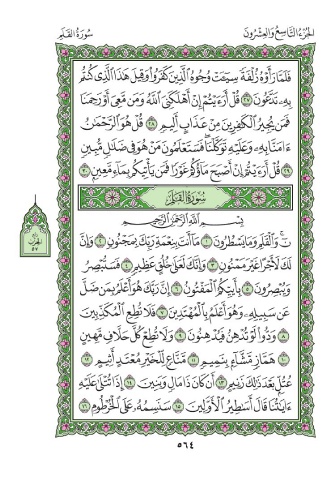 الجزء التاسع والعشرون سورة القلم
فَلَمَّا رَأَوْهُ زُلْفَةً سِيٓـَٔتْ وُجُوهُ ٱلَّذِينَ كَفَرُوا۟ وَقِيلَ هَٰذَا ٱلَّذِى كُنتُم
بِهِۦ تَدَّعُونَ ٢٧ قُلْ أَرَءَيْتُمْ إِنْ أَهْلَكَنِىَ ٱللَّهُ وَمَن مَّعِىَ أَوْ رَحِمَنَا
فَمَن يُجِيرُ ٱلْكَٰفِرِينَ مِنْ عَذَابٍ أَلِيمٍ ٢٨ قُلْ هُوَ ٱلرَّحْمَٰنُ
ءَامَنَّا بِهِۦ وَعَلَيْهِ تَوَكَّلْنَا فَسَتَعْلَمُونَ مَنْ هُوَ فِى ضَلَٰلٍ مُّبِينٍ
٢٩ قُلْ أَرَءَيْتُمْ إِنْ أَصْبَحَ مَآؤُكُمْ غَوْرًا فَمَن يَأْتِيكُم بِمَآءٍ مَّعِينٍۭ ٣٠
سُورَةُ القَلَمِ
بِسْمِ ٱللَّهِ ٱلرَّحْمَٰنِ ٱلرَّحِيمِ
نٓ وَٱلْقَلَمِ وَمَا يَسْطُرُونَ ١ مَآ أَنتَ بِنِعْمَةِ رَبِّكَ بِمَجْنُونٍ ٢ وَإِنَّ
لَكَ لَأَجْرًا غَيْرَ مَمْنُونٍ ٣ وَإِنَّكَ لَعَلَىٰ خُلُقٍ عَظِيمٍ ٤ فَسَتُبْصِرُ
وَيُبْصِرُونَ ٥ بِأَييِّكُمُ ٱلْمَفْتُونُ ٦ إِنَّ رَبَّكَ هُوَ أَعْلَمُ بِمَن ضَلَّ
عَن سَبِيلِهِۦ وَهُوَ أَعْلَمُ بِٱلْمُهْتَدِينَ ٧ فَلَا تُطِعِ ٱلْمُكَذِّبِينَ
٨ وَدُّوا۟ لَوْ تُدْهِنُ فَيُدْهِنُونَ ٩ وَلَا تُطِعْ كُلَّ حَلَّافٍ مَّهِينٍ
١٠ هَمَّازٍ مَّشَّآءٍۭ بِنَمِيمٍ ١١ مَّنَّاعٍ لِّلْخَيْرِ مُعْتَدٍ أَثِيمٍ ١٢
عُتُلٍّۭ بَعْدَ ذَٰلِكَ زَنِيمٍ ١٣ أَن كَانَ ذَا مَالٍ وَبَنِينَ ١٤ إِذَا تُتْلَىٰ عَلَيْهِ
ءَايَٰتُنَا قَالَ أَسَٰطِيرُ ٱلْأَوَّلِينَ ١٥ سَنَسِمُهُۥ عَلَى ٱلْخُرْطُومِ ١٦
٥٦٤